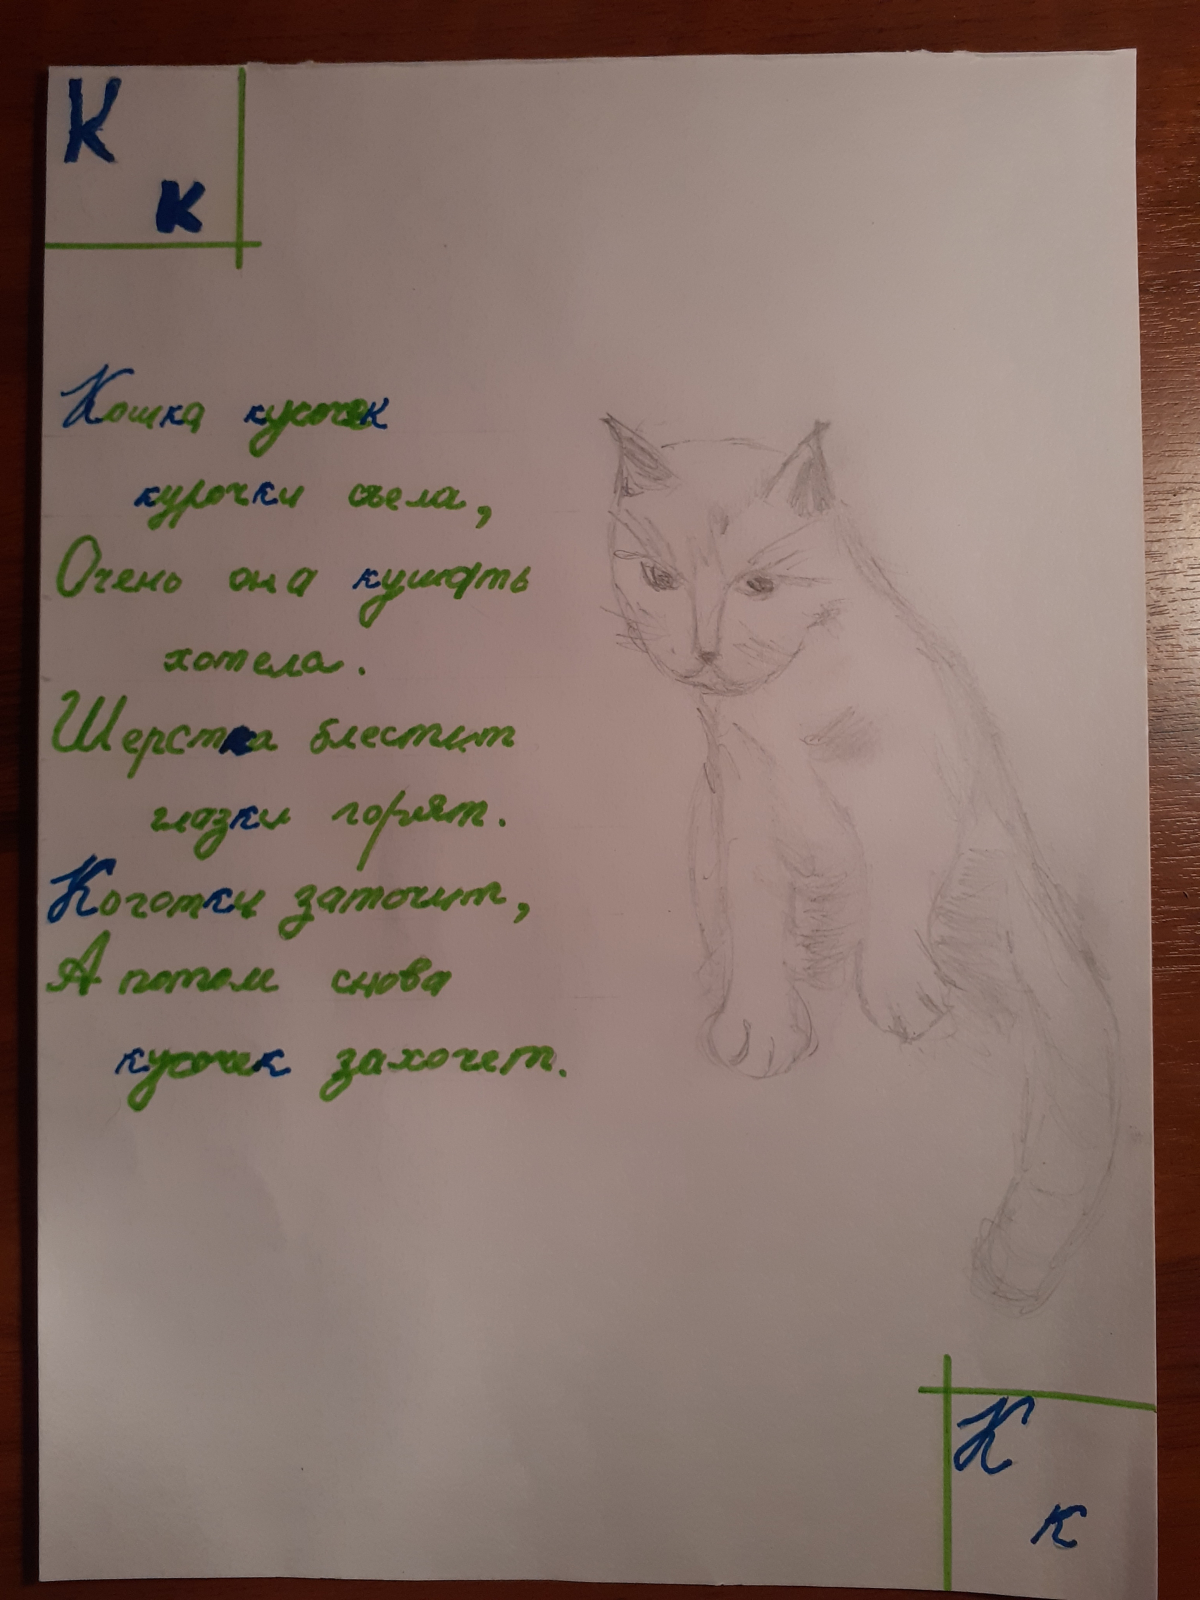 К
к
Кошка кусочек
курочки съела,
Очень она кушать
хотела.
Шерстка блестит
глазки горят.
Коготки заточит,
А потом снова
кусочек захочет.
К
к